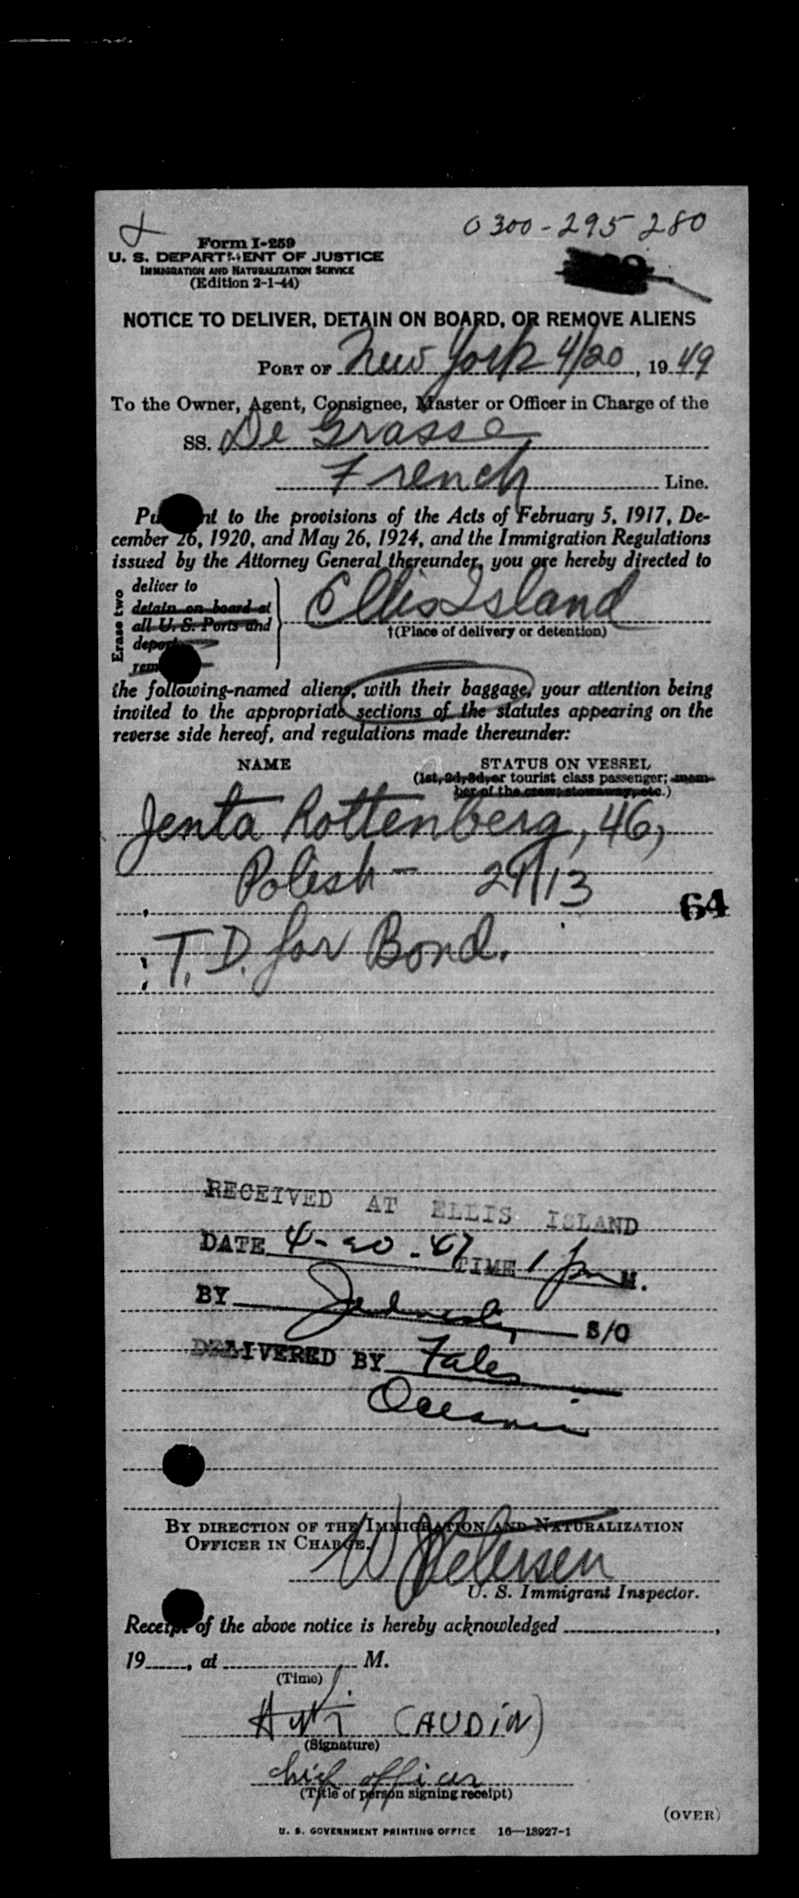 0300-295 280
Form I-259
U. S. DEPARTMENT OF JUSTICE
IMMIGRATION AND NATURALIZATION SERVICE
(Edition 2-1-44)
NOTICE TO DELIVER, DETAIN ON BOARD, OR REMOVE ALIENS
PORT OF New York 4/20, 1949
To the Owner, Agent, Consignee, Master or Officer in Charge of the
SS. De Grasse
French Line.
Pursuant to the provisions of the Acts of February 5, 1917, De-
cember 26, 1920, and May 26, 1924, and the Immigration Regulations
issued by the Attorney General thereunder, you are hereby directed to
Erase two
deliver to
detain on board at
all U. S. Ports and
deport
rem
Ellis Island
†(Place of delivery or detention)
the following-named aliens, with their baggage, your attention being
invited to the appropriate sections of the statutes appearing on the
reverse side hereof, and regulations made thereunder:
NAME STATUS ON VESSEL
(1st, 2d, 3d, or tourist class passenger; mem-
ber of the crew, stowaway, etc.)
Jenta Rottenberg, 46,
Polish - 21/13
64
T. D. for Bond.
RECEIVED AT ELLIS ISLAND
DATE 4-20-47 TIME 1 pm M.
BY S/O
DELIVERED BY Fales
Oceanic
BY DIRECTION OF THE IMMIGRATION AND NATURALIZATION
OFFICER IN CHARGE.
W Petersen
U. S. Immigrant Inspector.
Receipt of the above notice is hereby acknowledged ,
19 , at M.
(Time)
(AUDIN)
(Signature)
chief officer
(Title of person signing receipt)
(OVER)
U. S. GOVERNMENT PRINTING OFFICE 16—18927-1